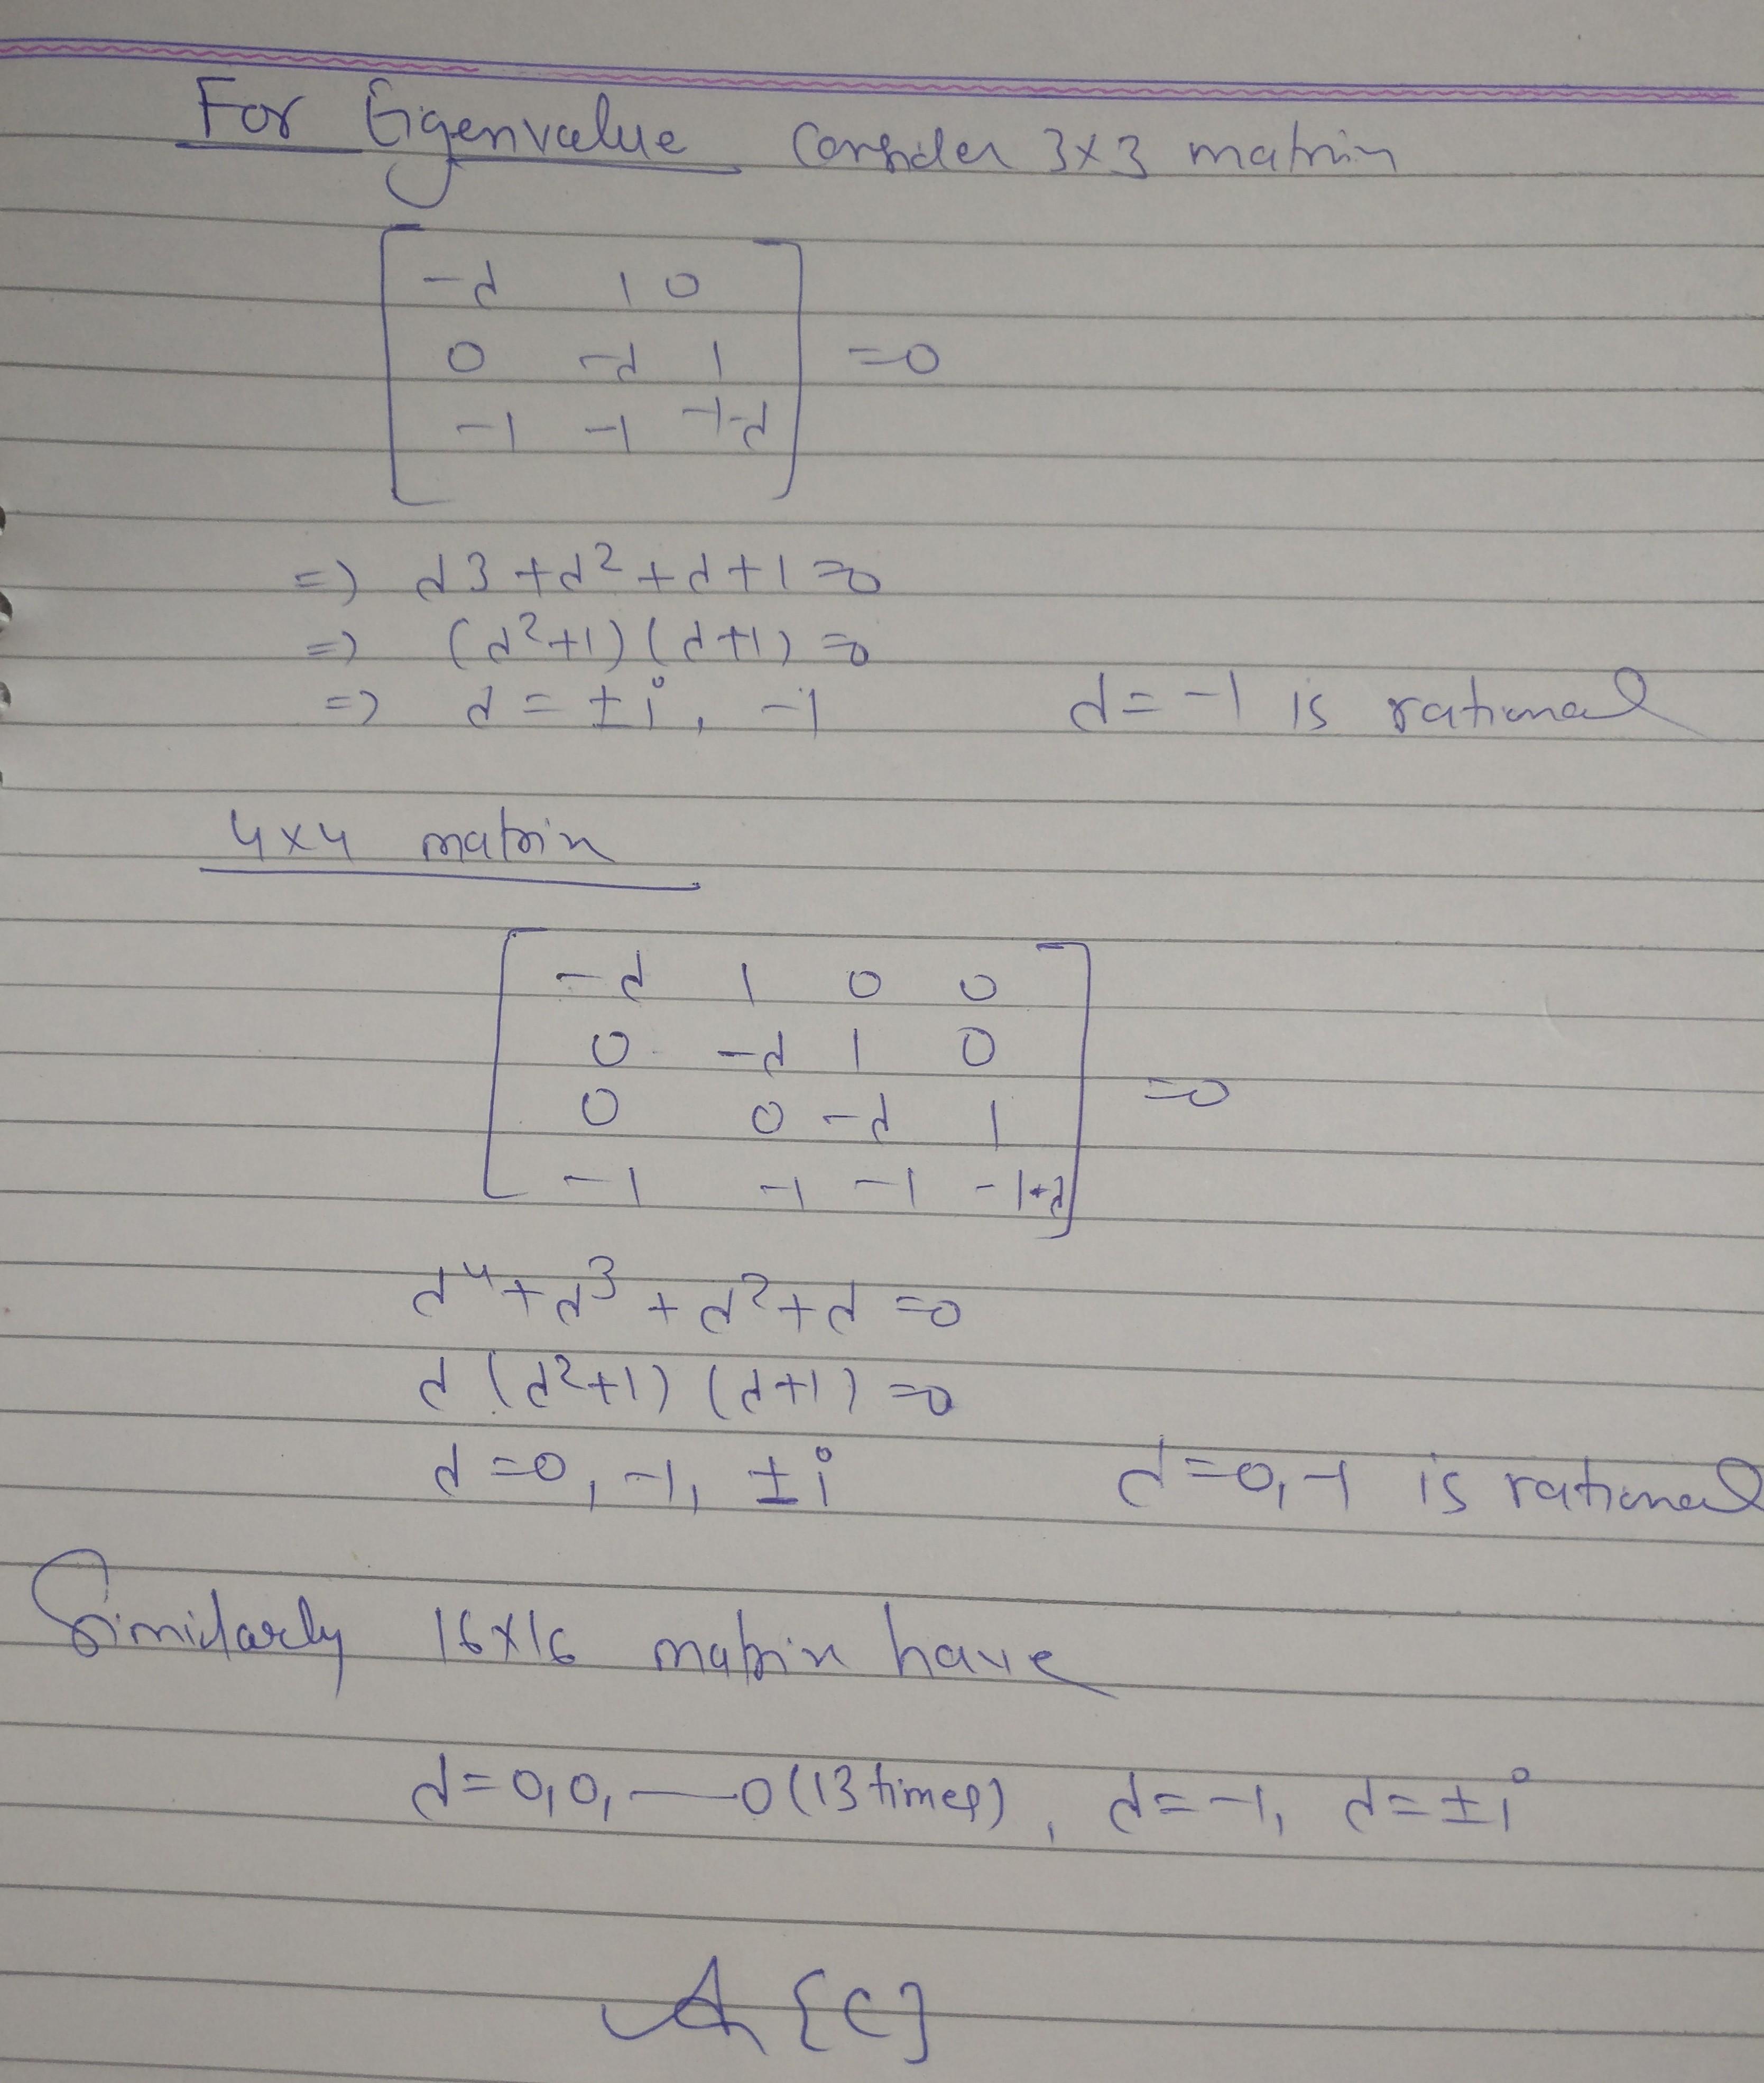 For Eigenvalue Consider 3×3 matrix
-λ 1 0
0 -λ 1 =0
-1 -1 -1-λ
=) λ3 + λ² + λ + 1 = 0
=) (λ²+1) (λ+1) = 0
=) λ = ±i, -1 λ = -1 is rational
4×4 matrix
-λ 1 0 0
0 -λ 1 0
0 0 -λ 1 =0
-1 -1 -1 -1+λ
λ⁴ + λ³ + λ² + λ = 0
λ (λ²+1) (λ+1) = 0
λ = 0, -1, ±i λ = 0, -1 is rational
Similarly 16×16 matrix have
λ = 0, 0, — 0 (13 times), λ = -1, λ = ±i
A {C}